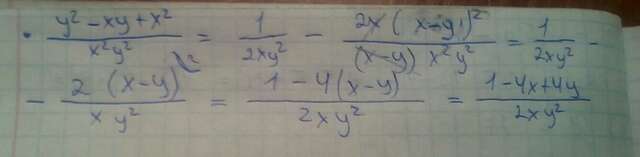 · \frac{y² - xy + x²}{x²y²} = \frac{1}{2xy²} - \frac{2x(x-y)²}{(x-y) x²y²} = \frac{1}{2xy²} -
- \frac{2(x-y)}{xy²} = \frac{1-4(x-y)}{2xy²} = \frac{1-4x+4y}{2xy²}